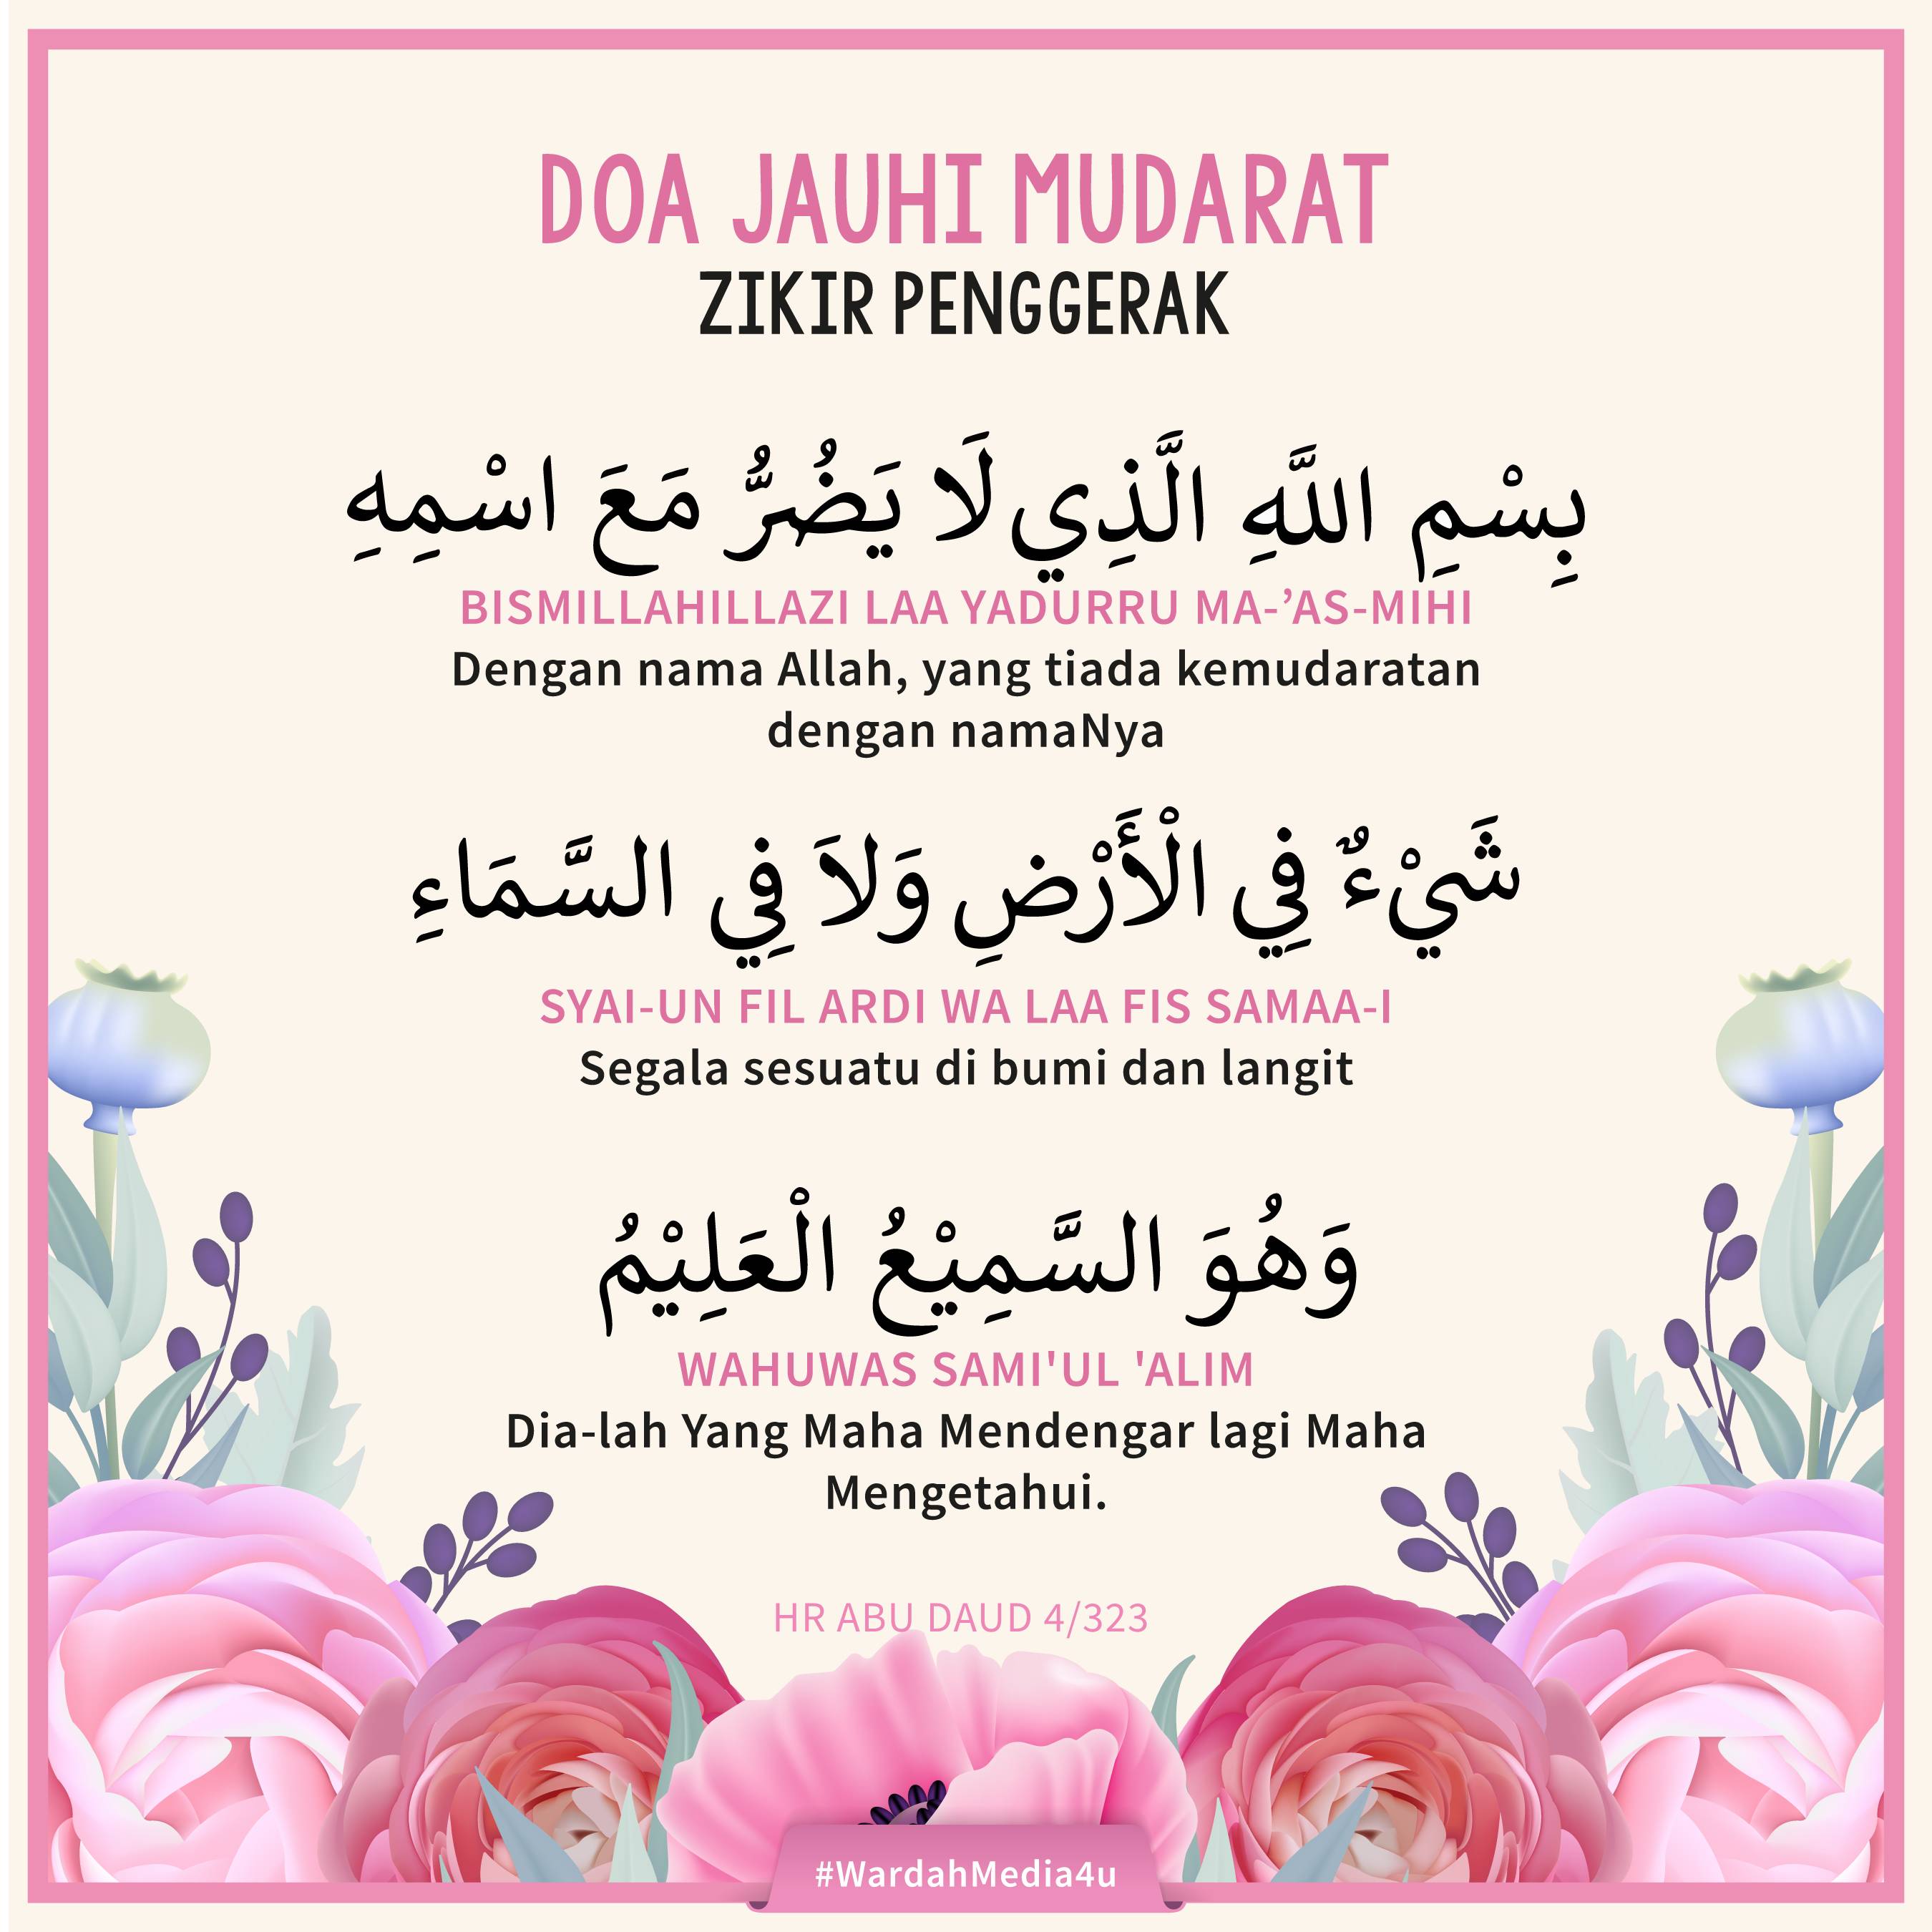 DOA JAUHI MUDARAT
ZIKIR PENGGERAK
بِسْمِ اللَّهِ الَّذِي لَا يَضُرُّ مَعَ اسْمِهِ
BISMILLAHILLAZI LAA YADURRU MA-’AS-MIHI
Dengan nama Allah, yang tiada kemudaratan
dengan namaNya
شَيْءٌ فِي الْأَرْضِ وَلاَ فِي السَّمَاءِ
SYAI-UN FIL ARDI WA LAA FIS SAMAA-I
Segala sesuatu di bumi dan langit
وَهُوَ السَّمِيْعُ الْعَلِيْمُ
WAHUWAS SAMI'UL 'ALIM
Dia-lah Yang Maha Mendengar lagi Maha
Mengetahui.
HR ABU DAUD 4/323
#WardahMedia4u